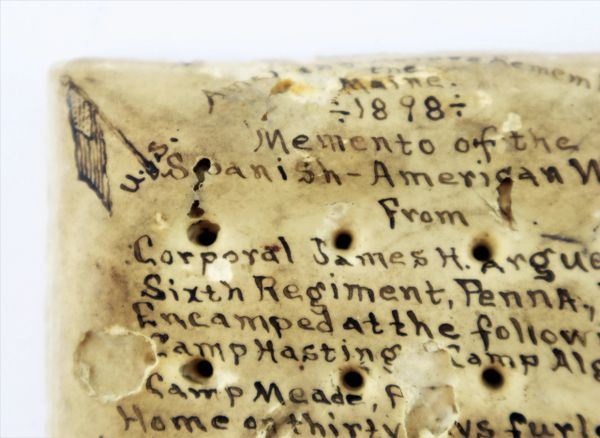 the Rememb
Maine.
÷1898÷
U.S.
Memento of the
Spanish-American W
From
Corporal James H. Argue
Sixth Regiment, Penna.,
Encamped at the follow
Camp Hasting Camp Alg
Camp Meade, P
Home on thirty ys furl